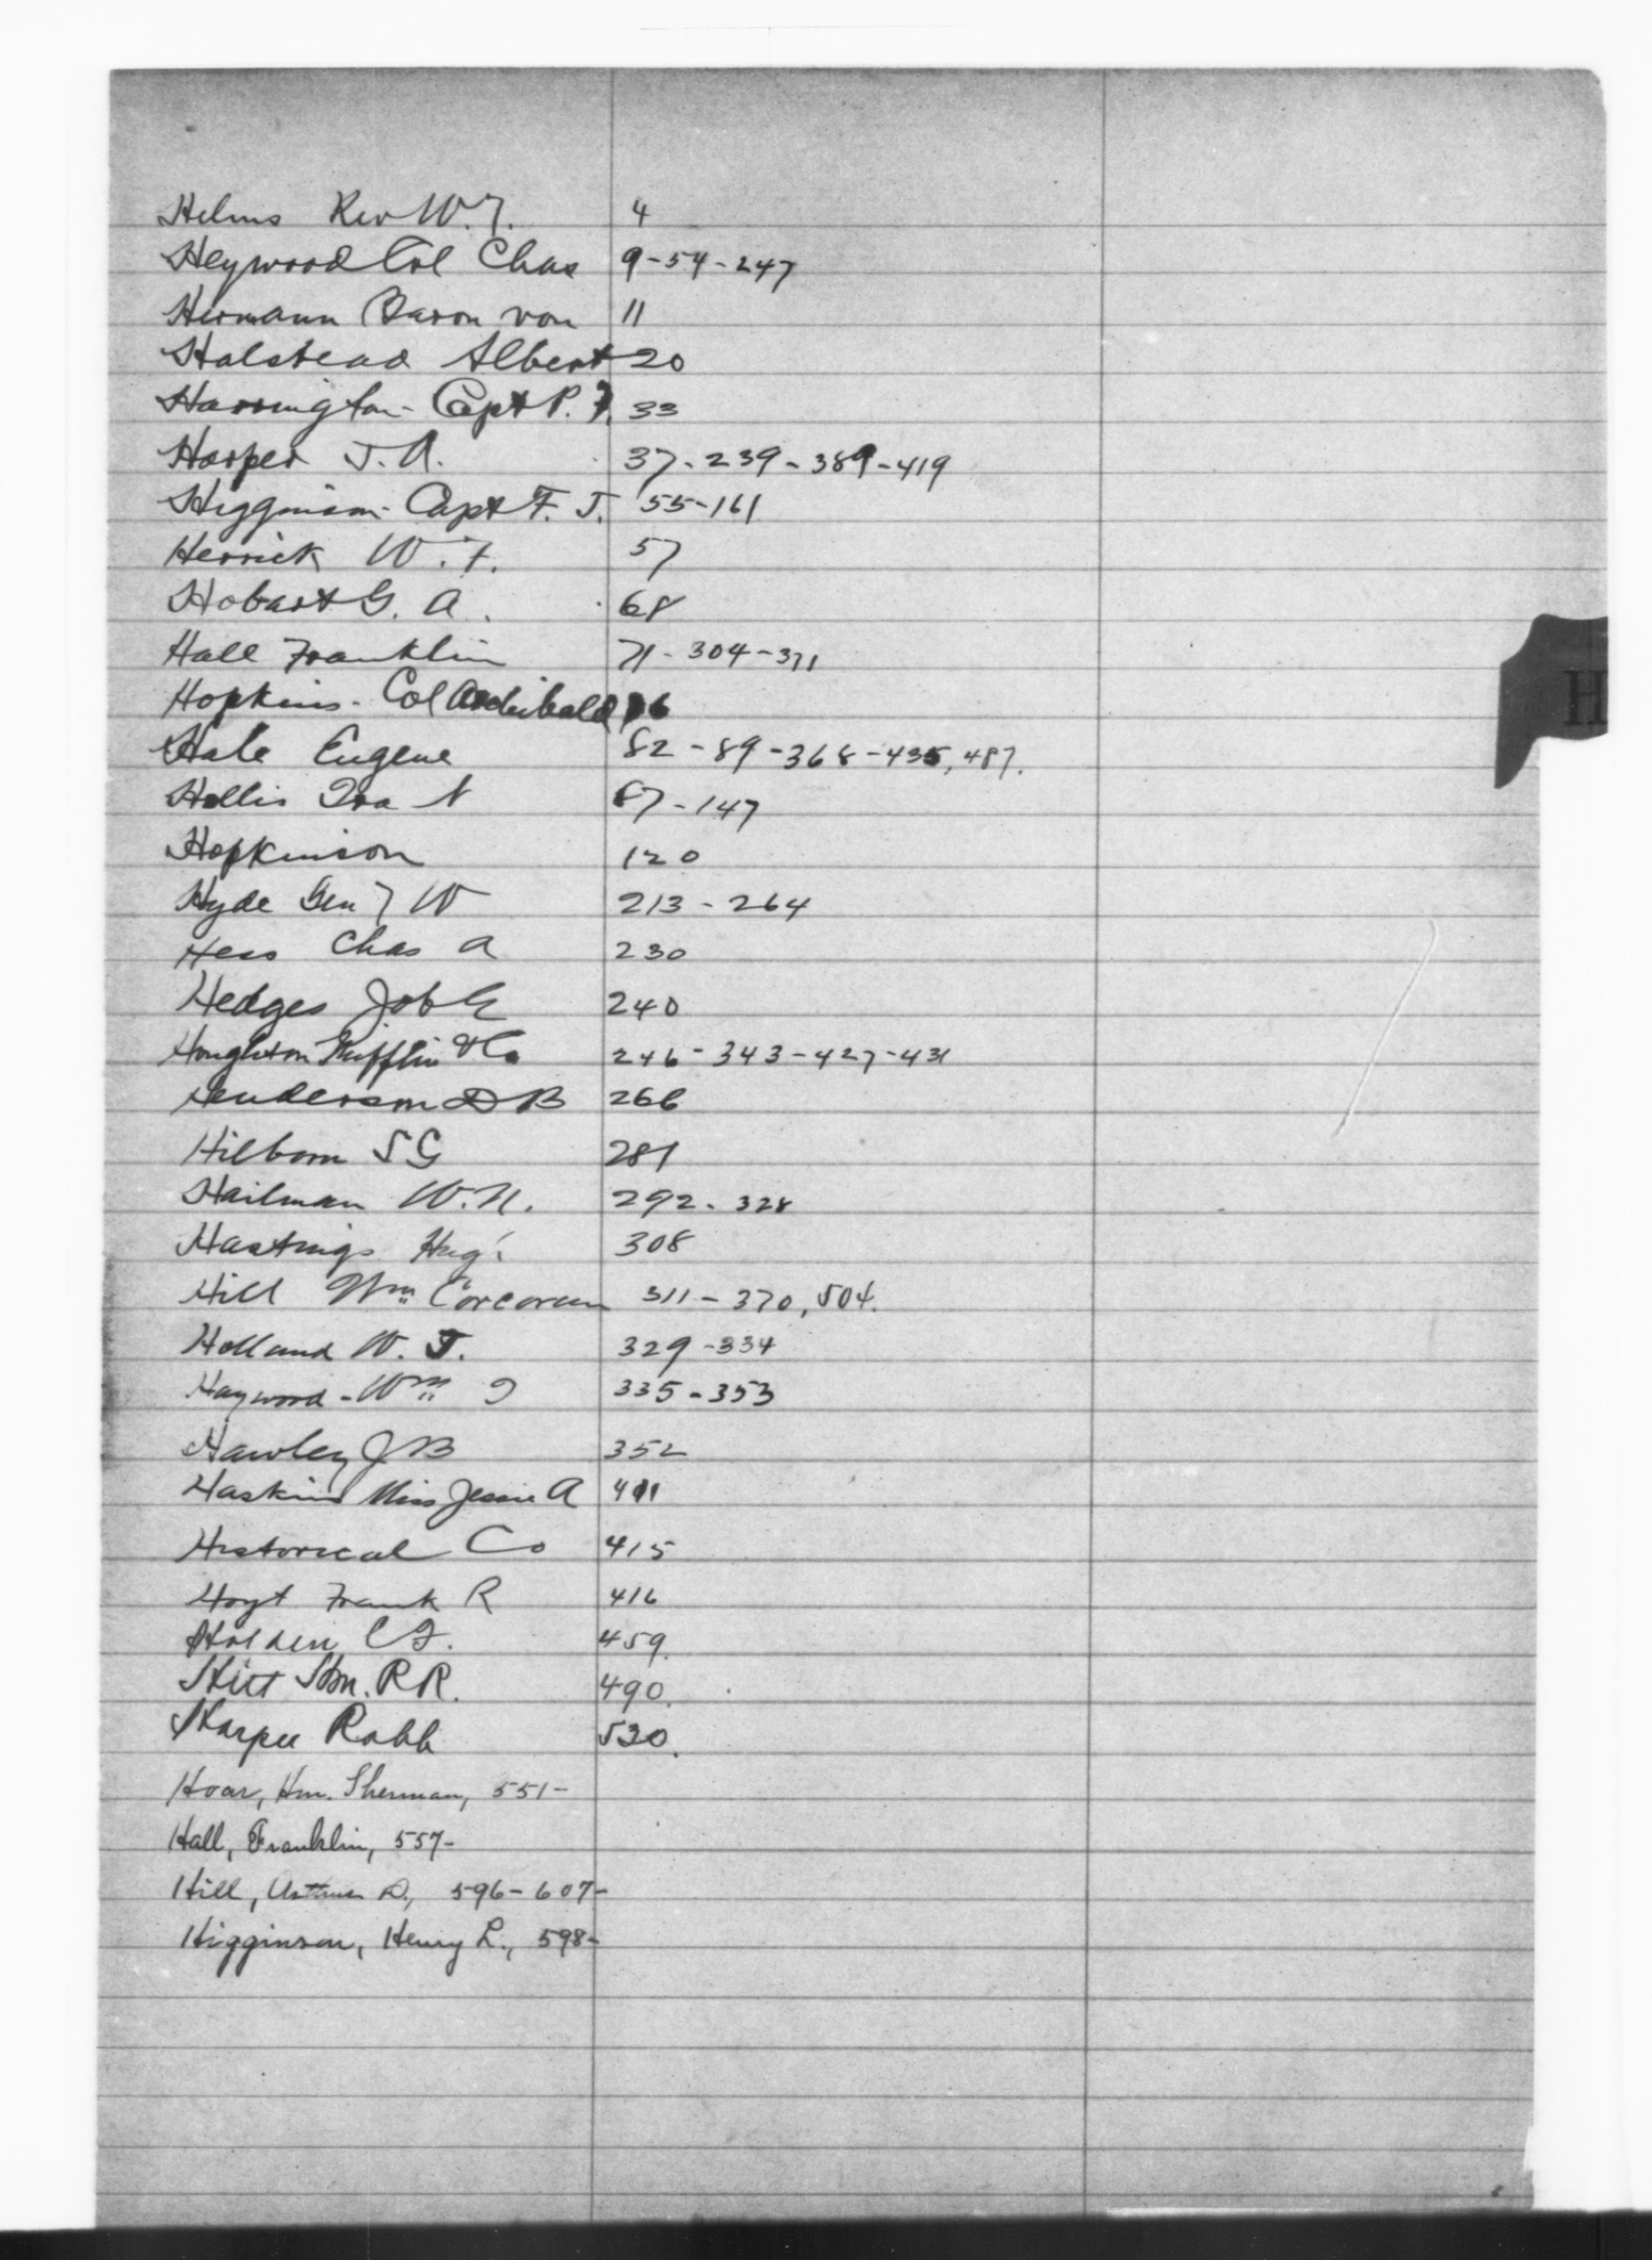 Helms Rev W. F. 4
Heywood Col Chas 9-54-247
Hermann Baron von 11
Halstead Albert 20
Harrington - Capt P. F. 33
Harper J. A. 37-239-389-419
Higginson - Capt F. J. 55-161
Herrick W. F. 57
Hobart G. A. 68
Hall Franklin 71-304-371
Hopkins - Col Archibald 76
Hale Eugene 82-89-368-435, 487.
Hollis Ira N 87-147
Hopkinson 120
Hyde Gen T W 213-264
Hess Chas A 230
Hedges Job E 240
Houghton Mifflin & Co 246-343-427-431
Henderson D B 266
Hilborn S G 281
Hailman W. N. 292-328
H
Hastings 308
Hill Wm Corcoran 311-370, 504.
Holland W. J. 329-334
Haywood - Wm 335-353
Hawley J B 352
Haskins Miss Jessie A 411
Historical Co 415
Hoyt Frank R 416
Holden 459.
Hitt Hon. R R. 490.
Harper Robb 530.
Hoar, Hon. Sherman, 551-
Hall, Franklin, 557-
Hill, Arthur D., 596-607-
Higginson, Henry L., 598-